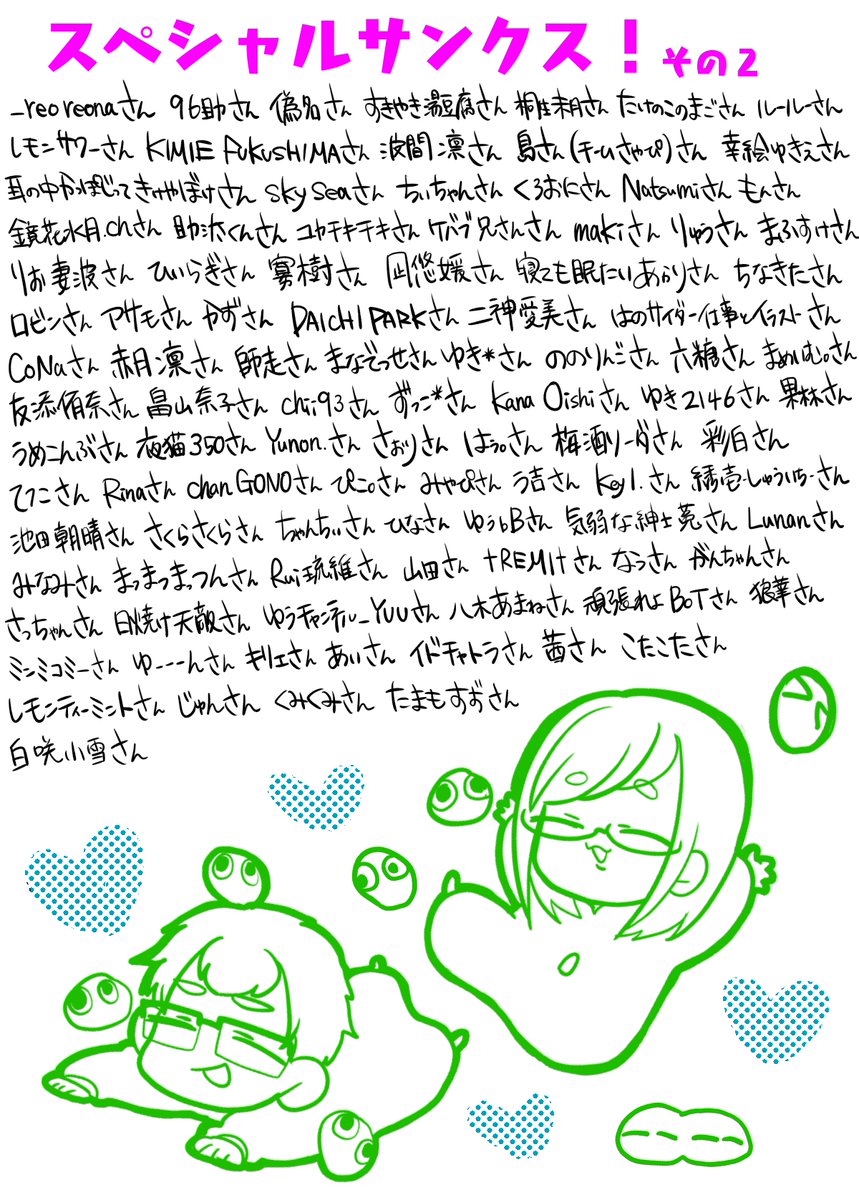 スペシャルサンクス！その２
_reo reonaさん 96助さん 偽名さん すきやき湯豆腐さん 桐生未月さん たけのこのまごさん ルールーさん
レモンサワーさん KIMIE FUKUSHIMAさん 波間凛さん 島さん(チームさゃぴ)さん 幸絵ゆきえさん
耳の中かっぽじってきけやぼけさん sky seaさん ちぃちゃんさん くろおにさん Natsumiさん もんさん
鏡花水月.chさん 助汰くんさん コヤチキチキさん ケバブ兄さんさん makiさん りゅうさん まふすけさん
りお妻波さん ひいらぎさん 寡樹さん 岡悠媛さん 寝ても眠たいあかりさん ちなきたさん
ロビンさん アサモさん かずさん DAICHI PARKさん 二神愛美さん はのサイダー仕事とイラストーさん
CoNaさん 赤月凛さん 師走さん まなでっせさん ゆき*さん ののりんごさん 六糖さん まめいむ。さん
友添侑奈さん 畠山奈子さん chii93さん ずっこ*さん Kana Oishiさん ゆき2146さん 果林さん
うめこんぶさん 夜猫350さん Yunon.さん さぉりさん はぅ。さん 梅酒リーダさん 彩白さん
てつこさん Rinaさん chan GONOさん ぴこ。さん みやぴさん う吉さん Key1.さん 繍壱-しゅういち-さん
池田朝晴さん さくらさくらさん ちゃんちぃさん ひなさん ゆぅbBさん 気弱な紳士莵さん Lunanさん
みなみさん まっまつまっつんさん Rui琉維さん 山田さん †REMI†さん なつさん がんちゃんさん
さっちゃんさん 日焼け天敵さん ゆうチャンネル_YUUさん 八木あまねさん 頑張れよBOTさん 狼華さん
ミンミコミーさん ゆーーーんさん キリエさん あいさん イドチャトラさん 茜さん こたこたさん
レモンティーミントさん じゅんさん くみくみさん たまもすずさん
白咲小雪さん